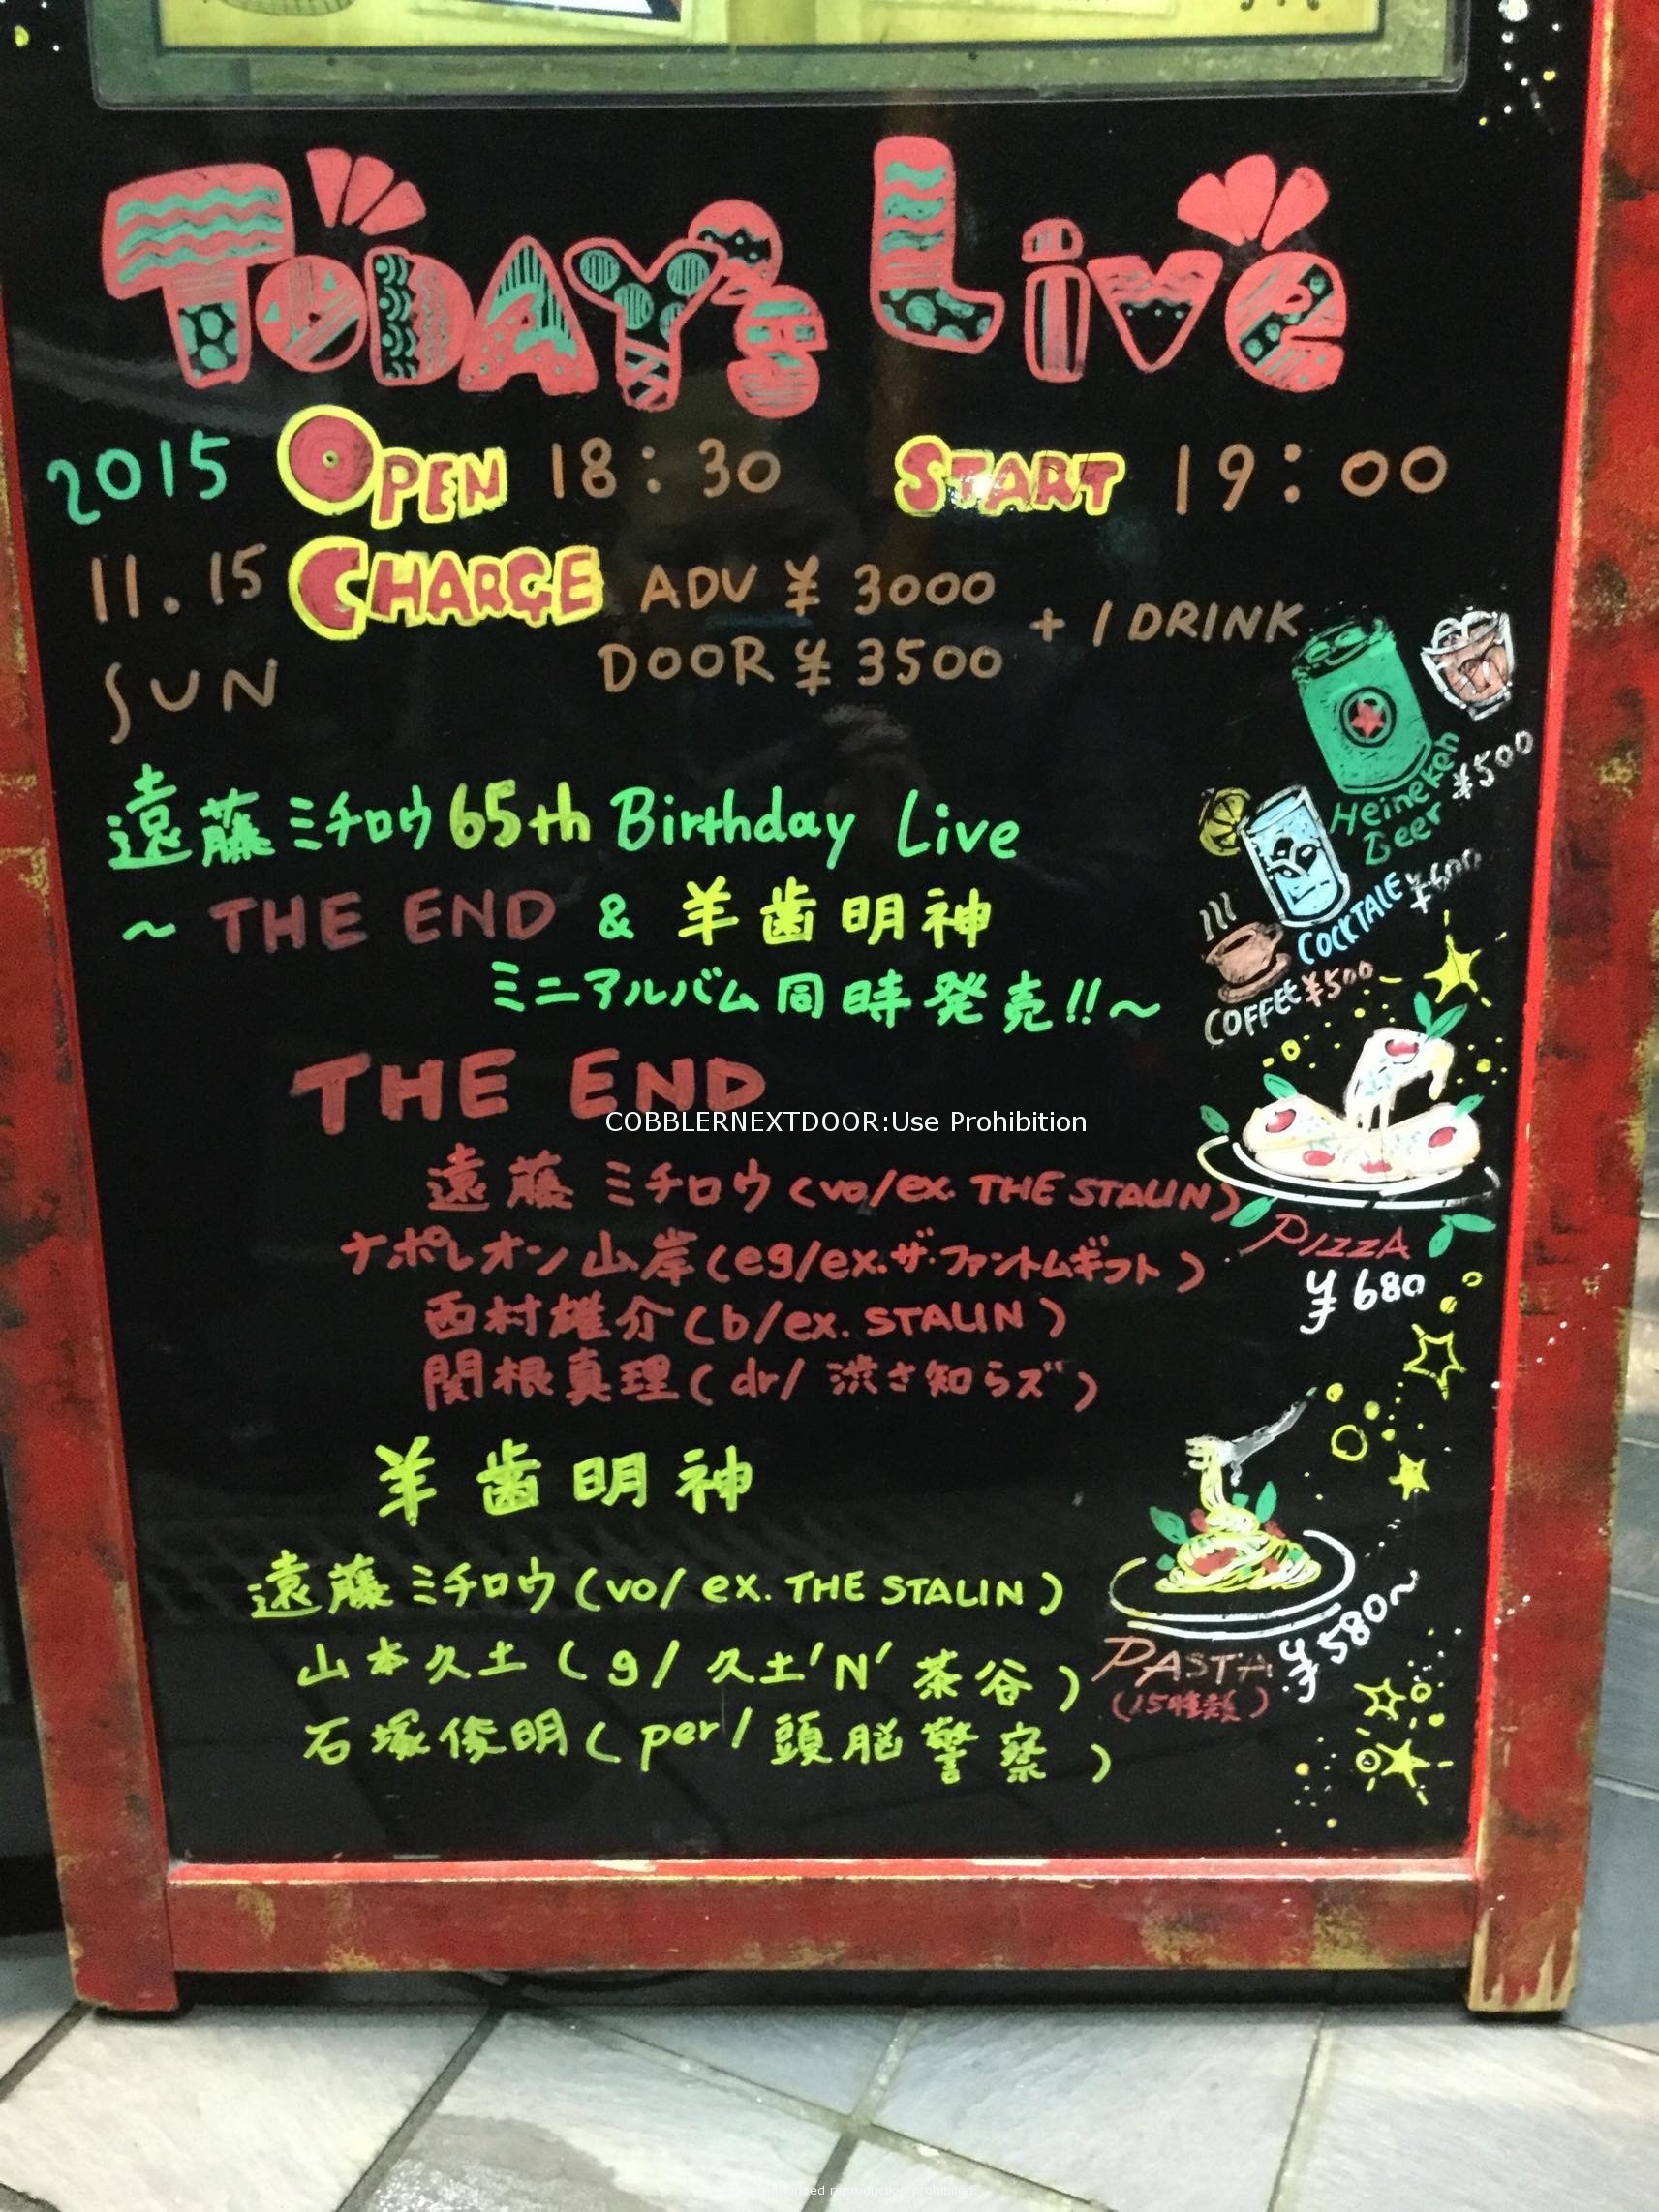 TODAY's Live
2015 OPEN 18:30 START 19:00
11.15 CHARGE ADV ¥3000
SUN DOOR ¥3500 + 1 DRINK
遠藤ミチロウ65th Birthday Live
～THE END & 羊歯明神
ミニアルバム同時発売!!～
THE END
遠藤ミチロウ(vo/ex. THE STALIN)
ナポレオン山岸(eg/ex.ザ・ファントムギフト)
西村雄介(b/ex. STALIN)
関根真理(dr/渋さ知らズ)
羊歯明神
遠藤ミチロウ(vo/ex. THE STALIN)
山本久土(g/久土'N'茶谷)
石塚俊明(per/頭脳警察)
Heineken
Beer ¥500
COCKTALE ¥600
COFFEE ¥500
PIZZA
¥680
PASTA ¥580～
(15種類)
COBBLERNEXTDOOR:Use Prohibition